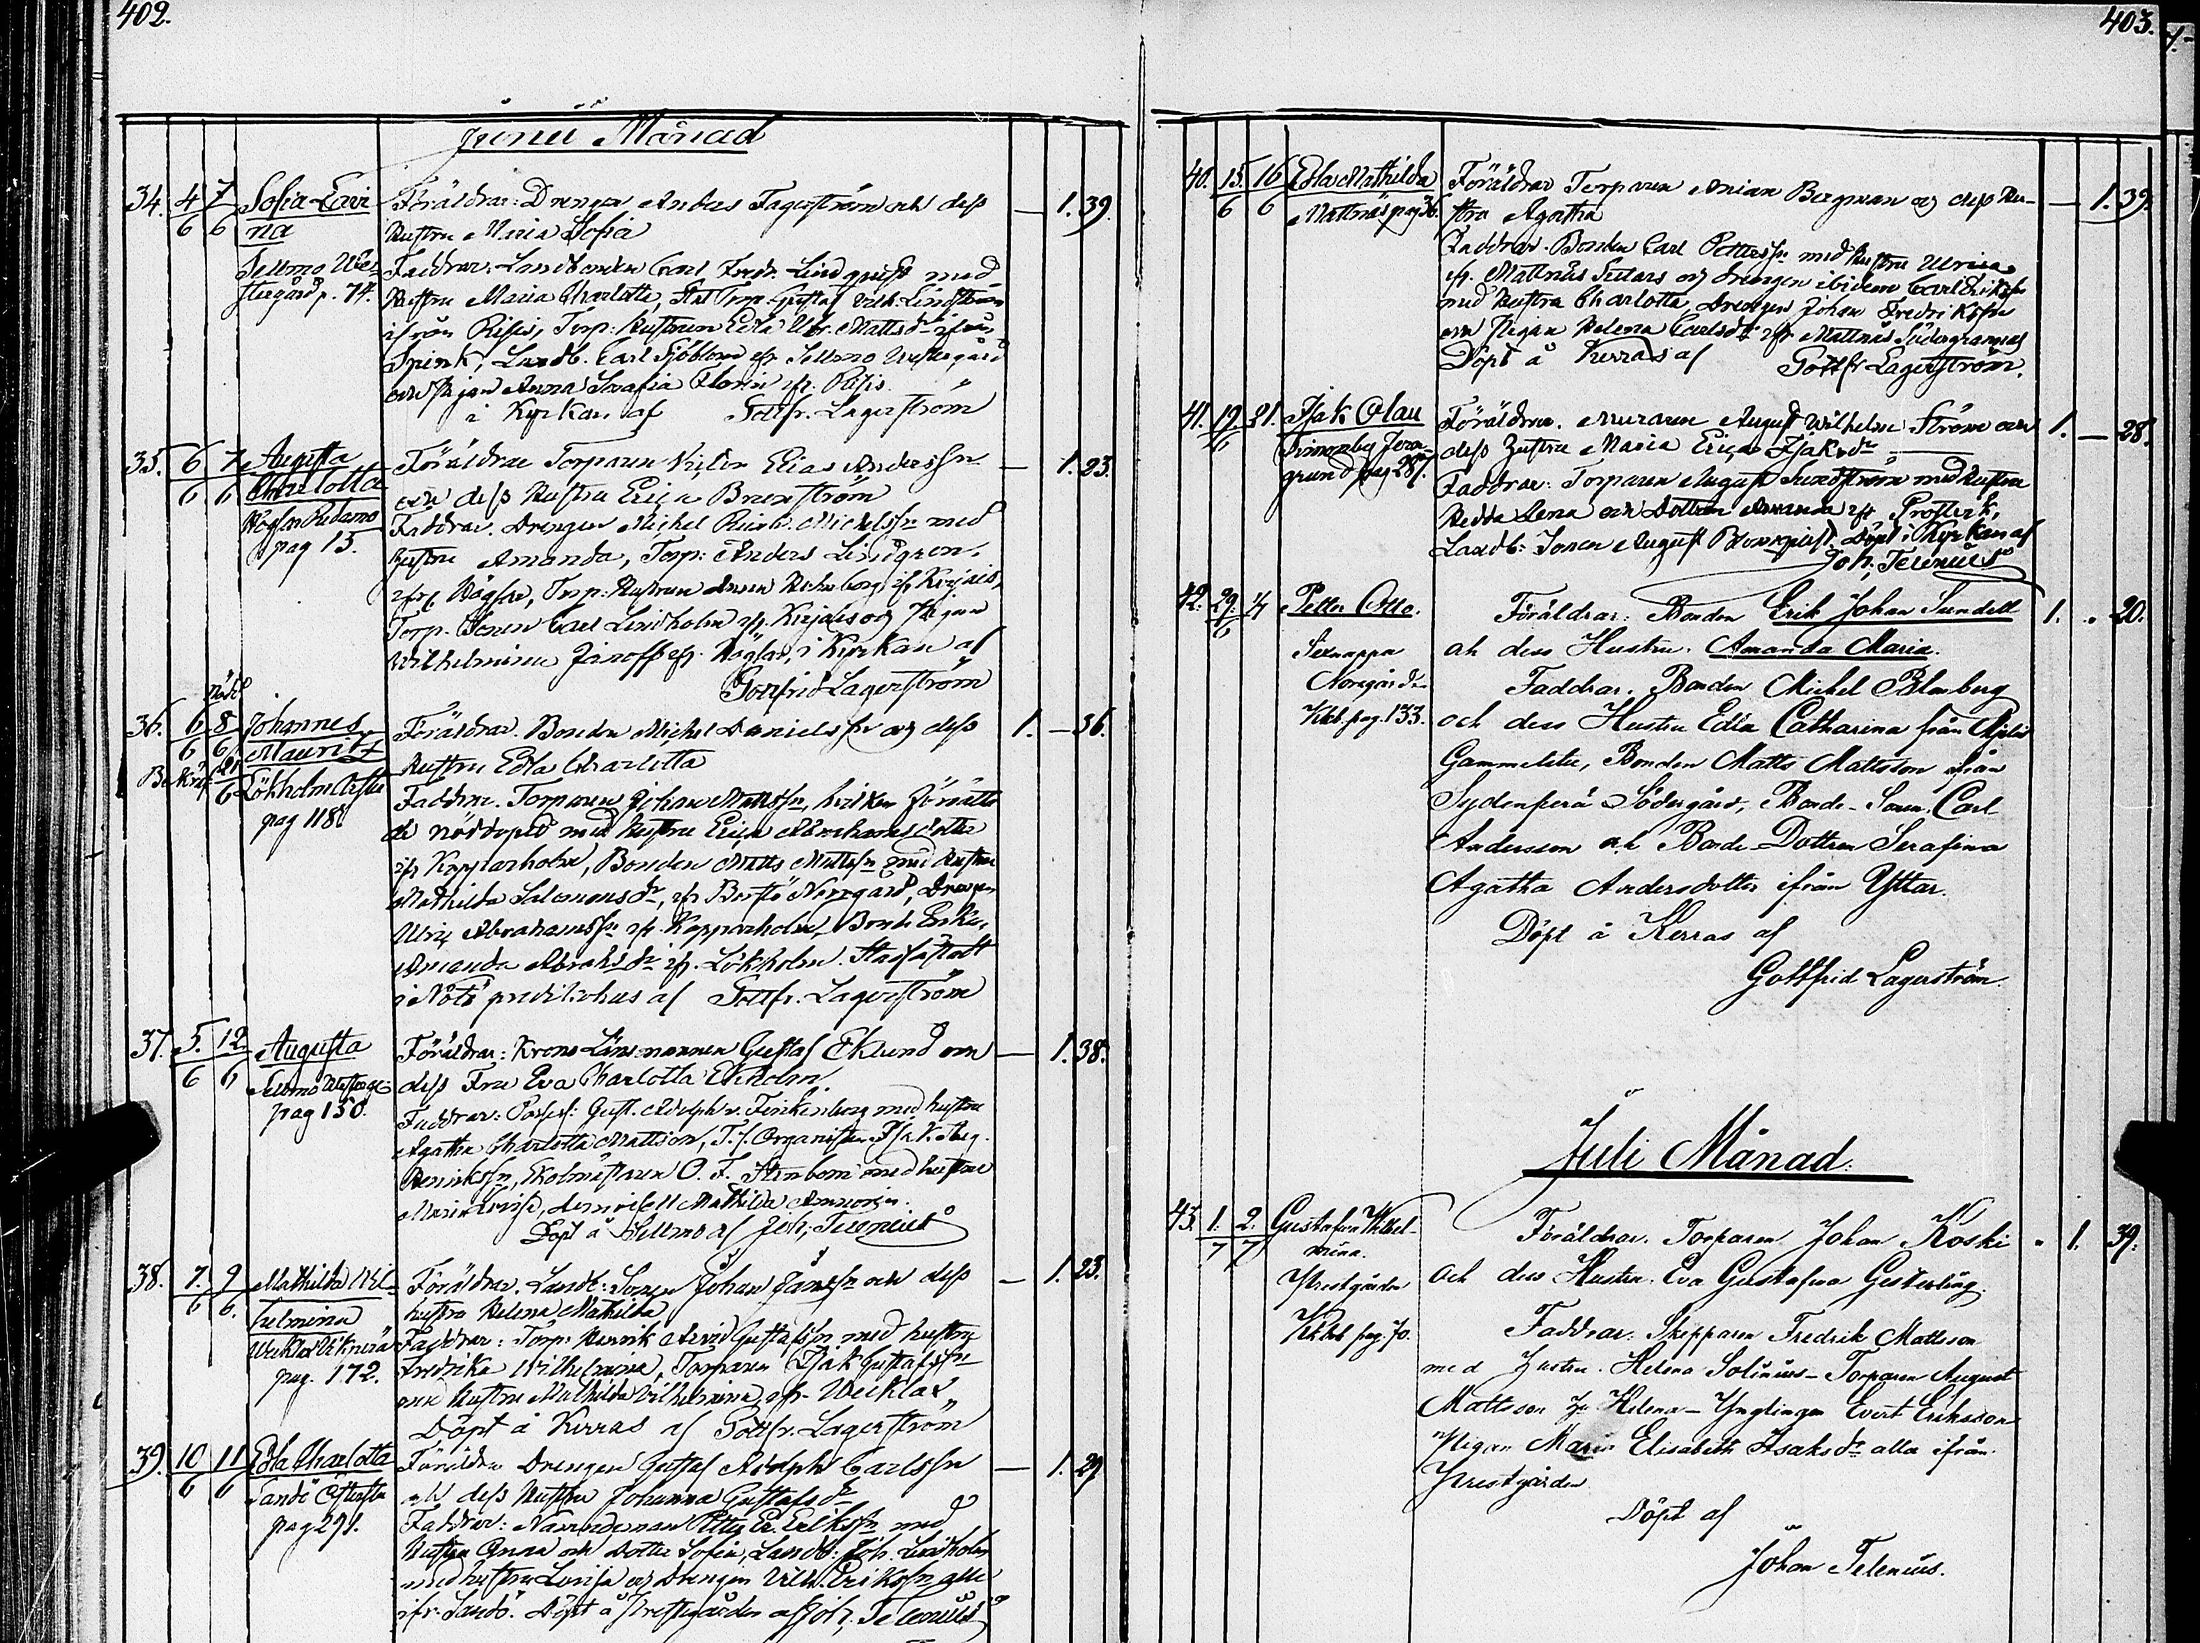 402.
Junii Månad
34. 4/6 7/6 Sofia Lovi-
na
Sellmo Wes-
stergård p. 74.
Föräldrar: Drengen Anders Fagerström och dess — 1. 39.
Hustru Maria Sofia
Faddrar: Landbonden Carl Fredr. Lindquist med
Hustru Maria Charlotta, Torp. Gustaf Vilh. Lindström
ifrån Risis, Torp: Hustrun Edla Ulr. Mattsdr ifrån
Spink, Landb. Carl Sjöblom ifr Sellmo Westergård
och Pigan Anna Serafia Florin ifr. Risis.
i Kyrkan af Gottfr. Lagerström
35. 6/6 7/6 Augusta
Charlotta
pag 15.
Föräldrar Torparen Victor Elias Anderssn — 1. 23.
och dess Hustru Erica Brenström
Faddrar. Drengen Michel Reinh. Michelssn med
hustru Amanda, Torp: Anders Lindgren
ifr. Wågslax, Torp: Hustrun Anna Holmberg ifr Kirjais,
Torp. Sonen Carl Lindholm ifr. Kirjais och Pigan
Wilhelmina ifr. Wåglax, i Kyrkan af
Gottfrid Lagerström
36. 6/6 nöd 8/6 Johannes
Mauritz
Bekräf 21/6 Lökholm
pag 118.
Föräldrar. Bonden Michel Danielssn och dess 1. — 36.
Hustru Edla Charlotta
Faddrar. Torparen Johan Mattssn, hvilken förrätta
de nöddopet med hustru Erica Abrahamsdotter
ifr Kopparholm, Bonden Matts Mattssn med hustru
Mathilda Salomonsdr, ifr Berghö Norrgård, Drengen
Ulric Abrahamssn ifr. Kopparholm, Bonde Enkan
Amanda Abrahsdr ifr. Lökholm. Stadfästadt
i Nötö predikohus af Gottfr. Lagerström
37. 5/6 12/6 Augusta
Sellmo Westerg:
pag 150.
Föräldrar: Krono Länsmannen Gustaf Eklund och — 1. 38.
dess Fru Eva Charlotta Ekholm.
Faddrar: Possess: Gust. Adolph v. Finkenberg med hustru
Agatha Charlotta Mattson, T.f. Organisten Isak Aug.
Henrikssn, Skolmästaren O. F. Stenbom med hustru
Maria Lovisa, demoisell Mathilda
Döpt å Sellmo af Joh. Telenius
38. 7/6 9/6 Mathilda Wil-
helmina
pag. 172.
Föräldrar. Landb: Sonen Johan Janssn och dess — 1. 23.
hustru Helena Mathilda
Faddrar: Torp: Henrik Arvid Gustafssn med hustru
Fredrika Wilhelmina, Torparen Isak Gustafssn
och Hustru Mathilda Vilhelmina ifr. Wecklax
Döpt å Kerras af Gottfr. Lagerström
39. 10/6 11/6 Edla Charlotta
Sandö
pag 291.
Föräldrar Drengen Gustaf Adolph Carlssn — 1. 29
och dess Hustru Johanna Gustafsdr
Faddrar: Petter Er. Erikssn med
Hustru Anna och Dotter Sofia, Landb: Joh. Lindholm
med hustru Lovisa och Drengen Vilh. Erikssn alla
ifr. Sandö. Döpt å Prestegården af Joh. Telenius
403.
40. 15/6 16/6 Edla Mathilda
Mattnäs pag 36.
Föräldrar Torparen Anian Bergman och dess Hu- — 1. 39.
stru Agatha
Faddrar. Bonden Carl Petterssn med hustru Ulrica
ifr. Mattnäs Sutars och drengen ibidem Carl Erikssn
med Hustru Charlotta, Drengen Johan Fredrikssn
och Pigan Helena Carlsdtr ifr. Mattnäs Södergrannas
Döpt å Kerras af Gottfr Lagerström.
41. 19/6 21. Isak Olau
Finnby
grund pag 287.
Föräldrar. Muraren August Wilhelm Ström och 1. — 28.
dess Hustru Maria Erica Isaksdr
Faddrar: Torparen August Sundström med Hustru
Hedda Lena och Dottren Amanda ifr Prostvik,
Landb: Sonen August Blomqvist. Döpt i Kyrkan af
Joh. Telenius
42. 29/6 1/7 Petter Otto.
Sexnappa
Norrgård
Kbkb. pag. 133.
Föräldrar: Bonden Erik Johan Sundell 1. - 20.
och dess Hustru. Amanda Maria.
Faddrar. Bonden Michel Blomberg
och dess Hustru Edla Catharina från
Gammelstu, Bonden Matts Mattsson ifrån
Sydenperä Södergård, Bonde-Sonen Carl
Andersson och Bonde-Dottren Serafina
Agatha Andersdotter ifrån Yttar.
Döpt å Kerras af
Gottfrid Lagerström.
Juli Månad.
43. 1/7 2/7 Gustafva Wilhel-
mina.
Prestgården
Kbkb pag. 70.
Föräldrar. Torparen Johan Koski " 1. 39.
och dess Hustru. Eva Gustafva Gesterling.
Faddrar: Skepparen Fredrik Mattsson
med Hustru. Helena Solinius - Torparen August
Mattsson Helena - Ynglingen Evert Eriksson
Pigan Maria Elisabeth Isaksdr alla ifrån
Prestgården
Döpt af
Johan Telenius.